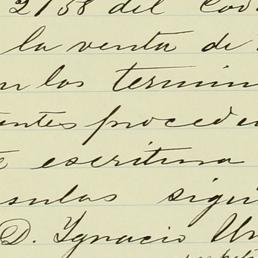 2158 del Cod
la venta de
n los termin
entes proceden
escritura
sulas sigui
D. Ignacio Ur